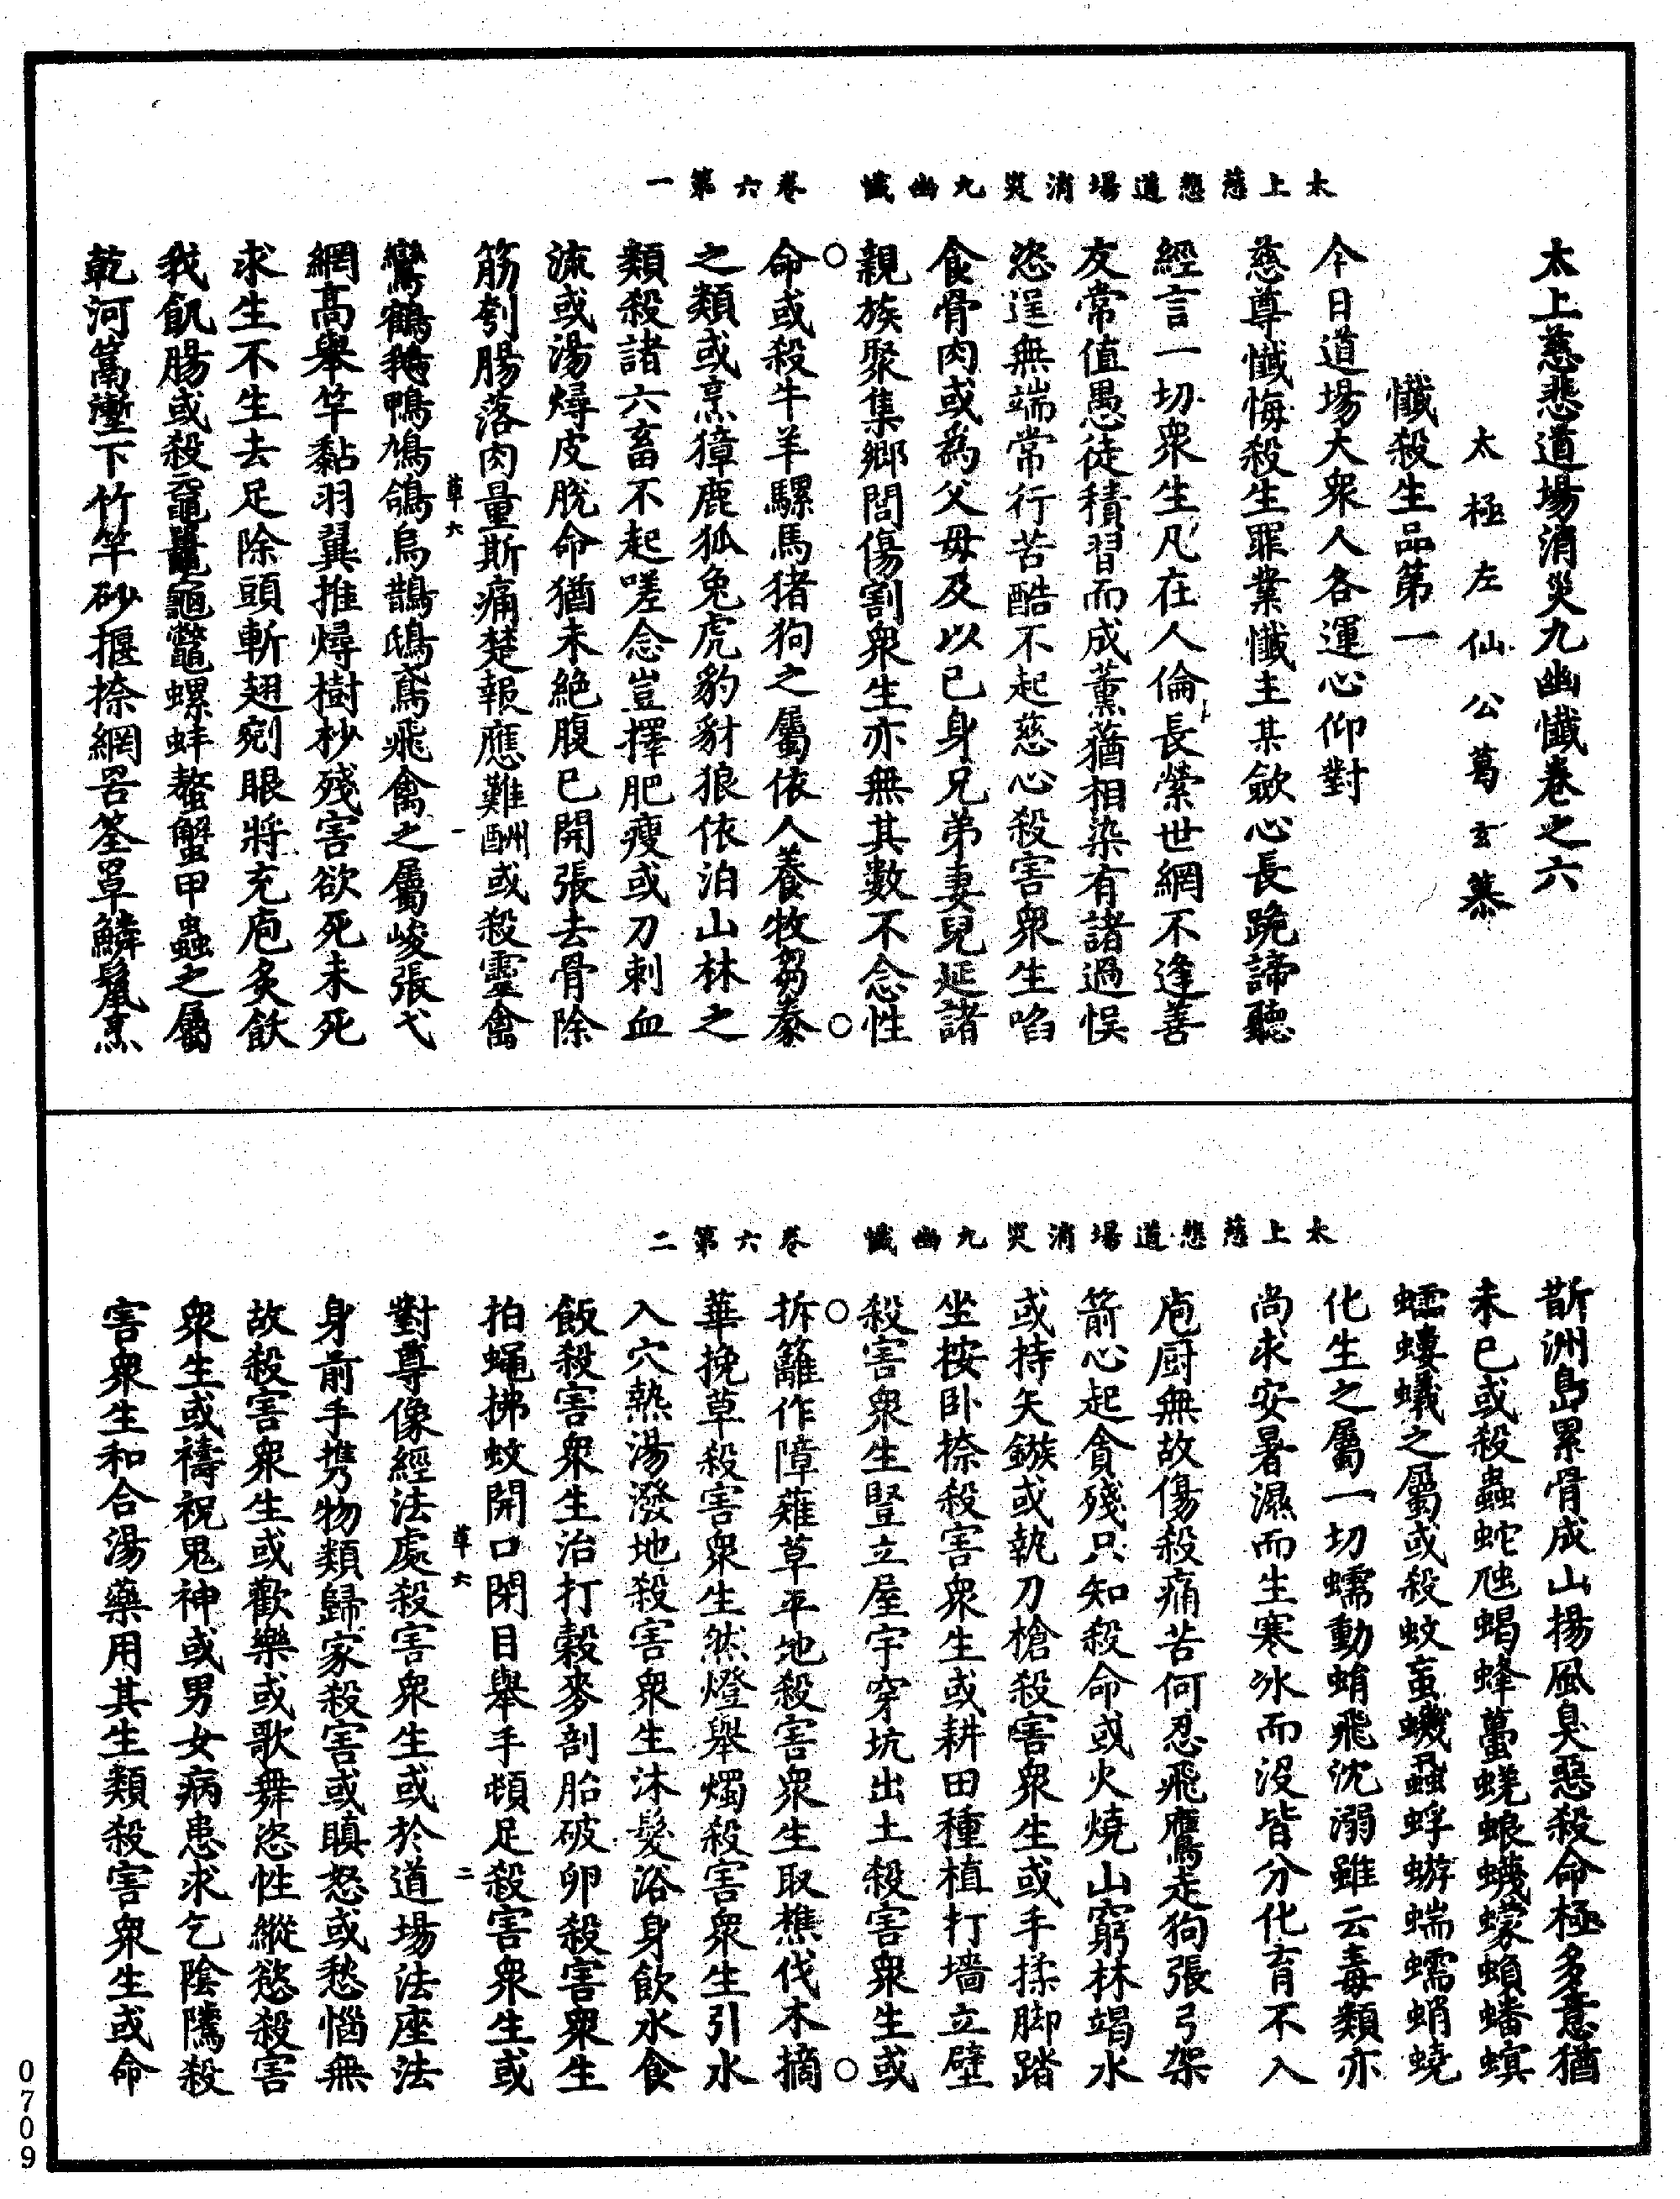 太上慈悲道場消災九幽懺 卷六第一
太上慈悲道場消災九幽懺卷之六
太極左仙公葛玄纂
懺殺生品第一
今日道場大衆人各運心仰對
慈尊懺悔殺生罪業懺主某歛心長跪諦聽
經言一切衆生凡在人倫長縈世網不逢善
友常值愚徒積習而成薰蕕相染有諸過悞
恣逞無端常行苦酷不起慈心殺害衆生啗
食骨肉或為父母及以已身兄弟妻兒延諸
親族聚集鄉閭傷割衆生亦無其數不念性
命或殺牛羊騾馬猪狗之屬依人養牧芻豢
之類或烹獐鹿狐兔虎豹豺狼依泊山林之
類殺諸六畜不起嗟念豈擇肥瘦或刀刺血
流或湯燖皮脫命猶未絶腹已開張去骨除
筋刳腸落肉量斯痛楚報應難酬或殺靈禽
草六 一
鸞鶴鵝鴨鳩鴿烏鵲鴟鳶飛禽之屬峻張弋
網高舉竿黏羽翼摧燖樹杪殘害欲死未死
求生不生去足除頭斬翅剜眼將充庖炙飲
我飢腸或殺黿鼉龜鼈螺蚌螯蟹甲蟲之屬
乾河篙壍下竹竿砂揠捺網罟筌罩鱗鬣烹
太上慈悲道場消災九幽懺 卷六第二
斮洲島累骨成山揚風臭惡殺命極多意猶
未已或殺蟲蛇虺蝎蜂蠆蜣蜋蠛蠓蝜蟠螟
蠕螻蟻之屬或殺蚊䖟蟣蝨蜉蝣蝡蠕蛸蟯
化生之屬一切蠕動蜎飛沈溺雖云毒類亦
尚求安暑濕而生寒氷而没皆分化育不入
庖厨無故傷殺痛苦何忍飛鷹走狗張弓架
箭心起貪殘只知殺命或火燒山窮林竭水
或持矢鏃或執刀槍殺害衆生或手揉脚踏
坐按卧捺殺害衆生或耕田種植打墻立壁
殺害衆生豎立屋宇穿坑出土殺害衆生或
拆籬作障薙草平地殺害衆生取樵伐木摘
華挽草殺害衆生然燈舉燭殺害衆生引水
入穴熱湯潑地殺害衆生沐髮浴身飲水食
飯殺害衆生治打穀麥剖胎破卵殺害衆生
拍蠅拂蚊開口閉目舉手頓足殺害衆生或
草六 二
對尊像經法處殺害衆生或於道場法座法
身前手携物類歸家殺害或瞋怒或愁惱無
故殺害衆生或歡樂或歌舞恣性縱慾殺害
衆生或禱祝鬼神或男女病患求乞陰隲殺
害衆生和合湯藥用其生類殺害衆生或命
0709